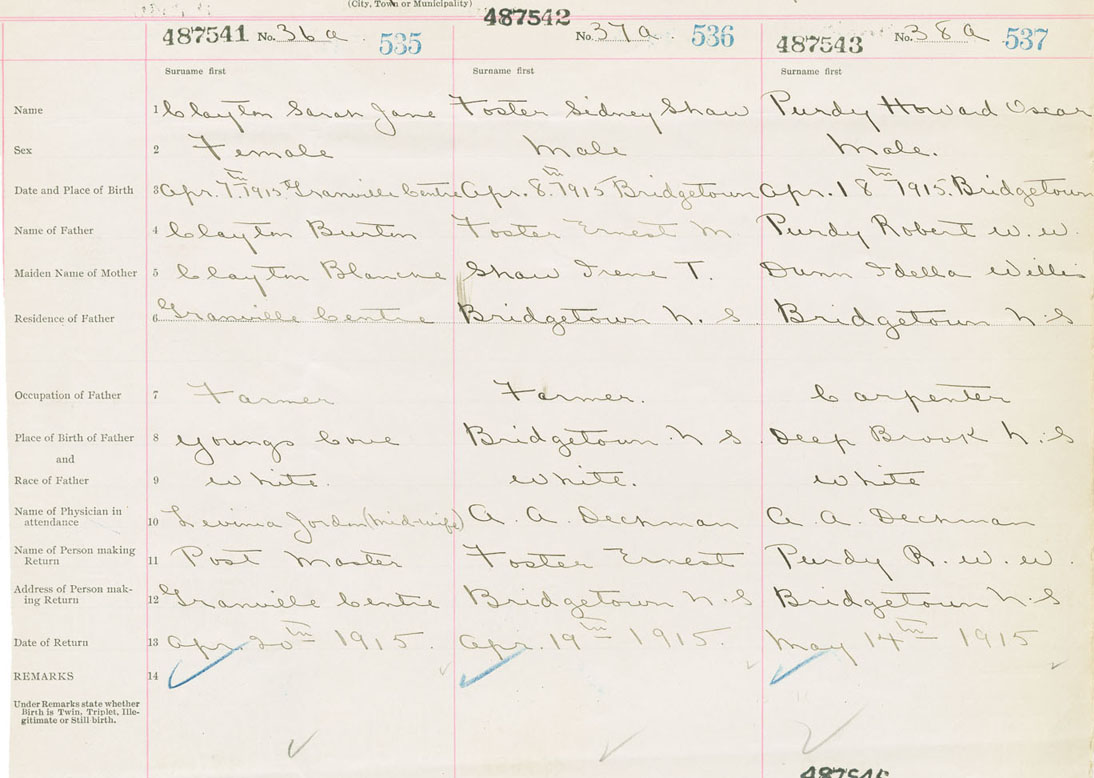 (City, Town or Municipality)
487541 No. 36a 535 487542 No. 37a 536 487543 No. 38a 537
Surname first Surname first Surname first
Name 1 Clayton Sarah Jane Foster Sidney Shaw Purdy Howard Oscar
Sex 2 Female Male Male.
Date and Place of Birth 3 Apr. 7th 1915. Granville Centre Apr. 8th 1915 Bridgetown Apr. 18th 1915. Bridgetown
Name of Father 4 Clayton Burton Foster Ernest M. Purdy Robert W. W.
Maiden Name of Mother 5 Clayton Blanche Shaw Irene T. Dunn Idella Willis
Residence of Father 6 Granville Centre Bridgetown N. S. Bridgetown N.S
Occupation of Father 7 Farmer Farmer. Carpenter
Place of Birth of Father 8 Youngs Cove Bridgetown N S Deep Brook N.S
and
Race of Father 9 White. White. White
Name of Physician in
attendance 10 Levinia Jordan (Midwife) A. A. Dechman A A. Dechman
Name of Person making
Return 11 Post Master Foster Ernest Purdy R. W. W.
Address of Person mak-
ing Return 12 Granville Centre Bridgetown N.S Bridgetown N.S
Date of Return 13 Apr. 20th 1915. Apr. 19th 1915. May 14th 1915
REMARKS 14
Under Remarks state whether
Birth is Twin. Triplet, Ille-
gitimate or Still birth.